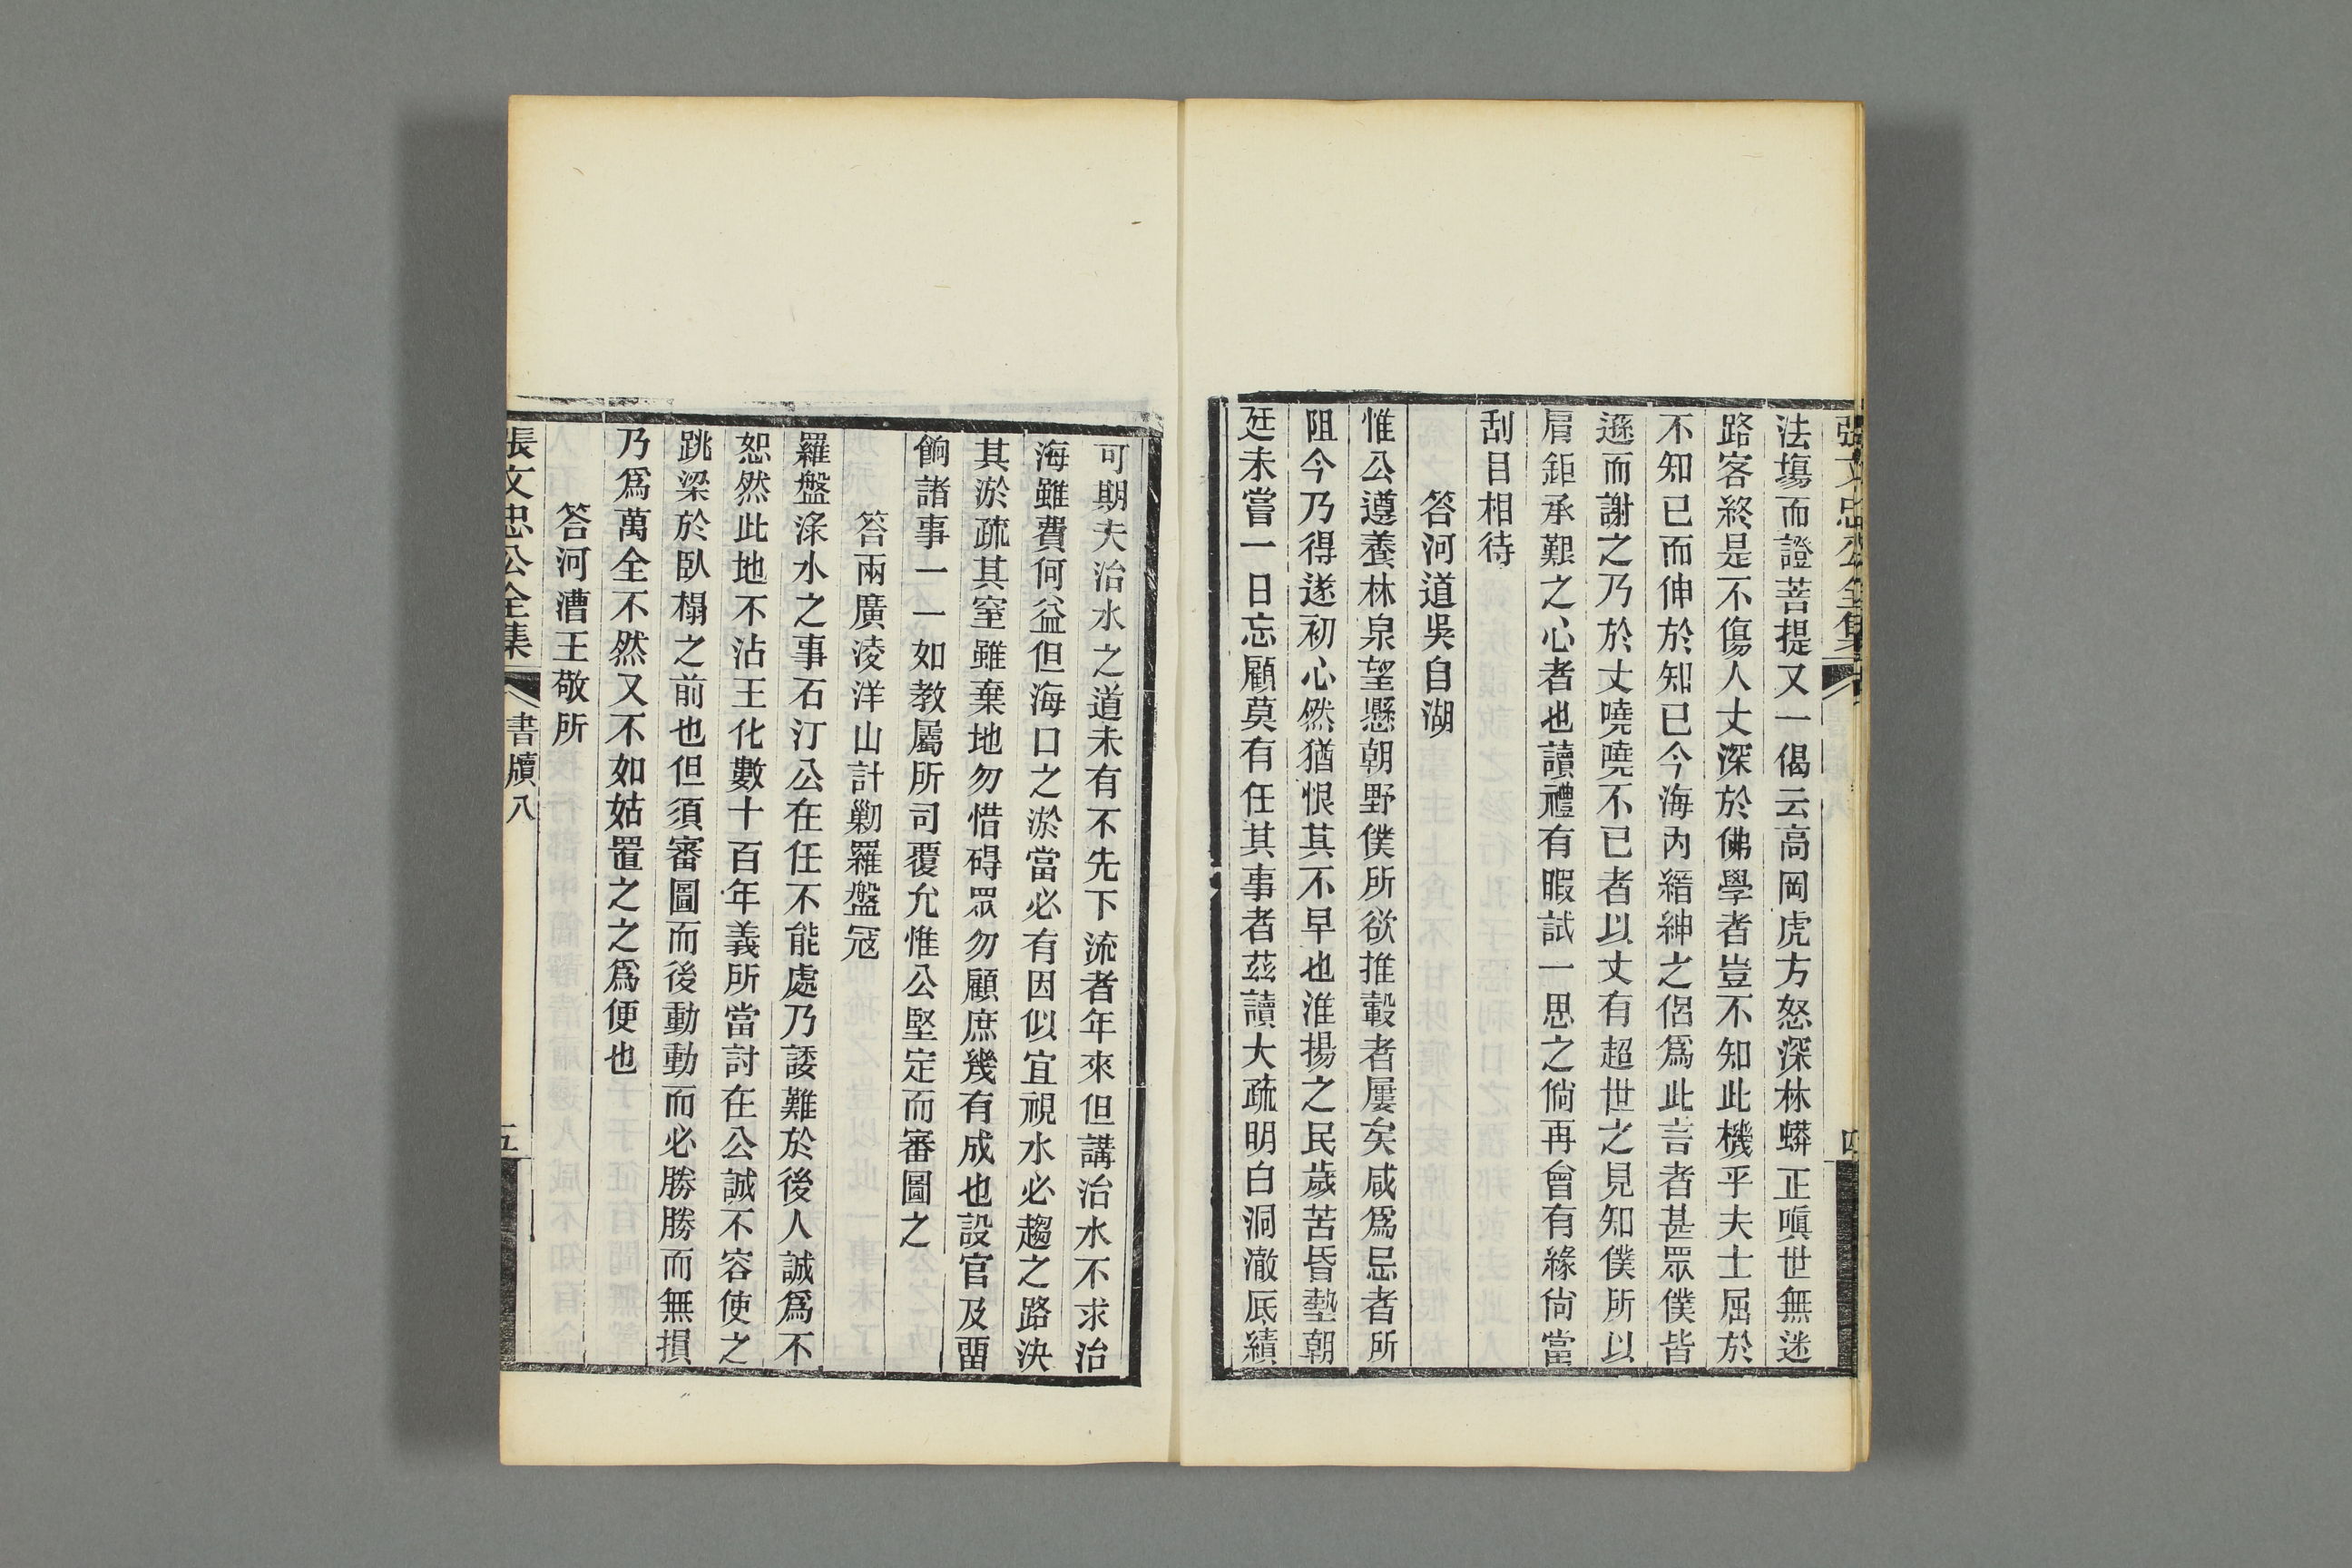 張文忠公全集
四
法塲而證菩提又一偈云高岡虎方怒深林蟒正嗔世無迷
路客終是不傷人丈深於佛學者豈不知此機乎夫士屈於
不知已而伸於知已今海內縉紳之侣爲此言者甚眾僕皆
遜而謝之乃於丈嘵嘵不已者以丈有超世之見知僕所以
屑鉅承艱之心者也讀禮有暇試一思之倘再會有緣尙當
刮目相待
答河道吳自湖
惟公遵養林泉望懸朝野僕所欲推轂者屢矣咸爲忌者所
阻今乃得遂初心然猶恨其不早也淮揚之民歲苦昏墊朝
廷未嘗一日忘顧莫有任其事者茲讀大疏明白洞澈底績
可期夫治水之道未有不先下流者年來但講治水不求治
海雖費何益但海口之淤當必有因似宜視水必趨之路決
其淤疏其窒雖棄地勿惜碍眾勿顧庶幾有成也設官及畱
餉諸事一一如教屬所司覆允惟公堅定而審圖之
答兩廣淩洋山計勦羅盤冦
羅盤淥水之事石汀公在任不能處乃諉難於後人誠爲不
恕然此地不沾王化數十百年義所當討在公誠不容使之
跳梁於臥榻之前也但須審圖而後動動而必勝勝而無損
乃爲萬全不然又不如姑置之之爲便也
答河漕王敬所
張文忠公全集
書牘八
五